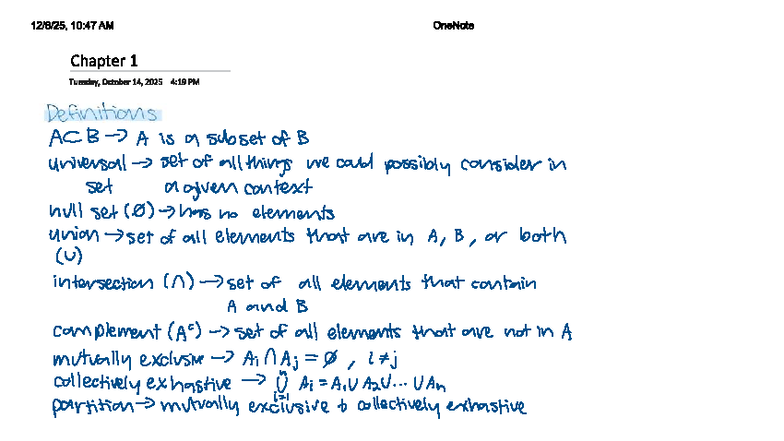 12/8/25, 10:47 AM OneNote
Chapter 1
Tuesday, October 14, 2025 4:19 PM
Definitions
A⊂B → A is a subset of B
universal → set of all things we could possibly consider in
set a given context
null set (∅) → has no elements
union → set of all elements that are in A, B, or both
(∪)
intersection (∩) → set of all elements that contain
A and B
complement (Aᶜ) → set of all elements that are not in A
mutually exclusive → Aᵢ ∩ Aⱼ = ∅ , i ≠ j
collectively exhastive → ⋃ⁿᵢ₌₁ Aᵢ = A₁ ∪ A₂ ∪ ... ∪ Aₙ
partition → mutually exclusive & collectively exhastive